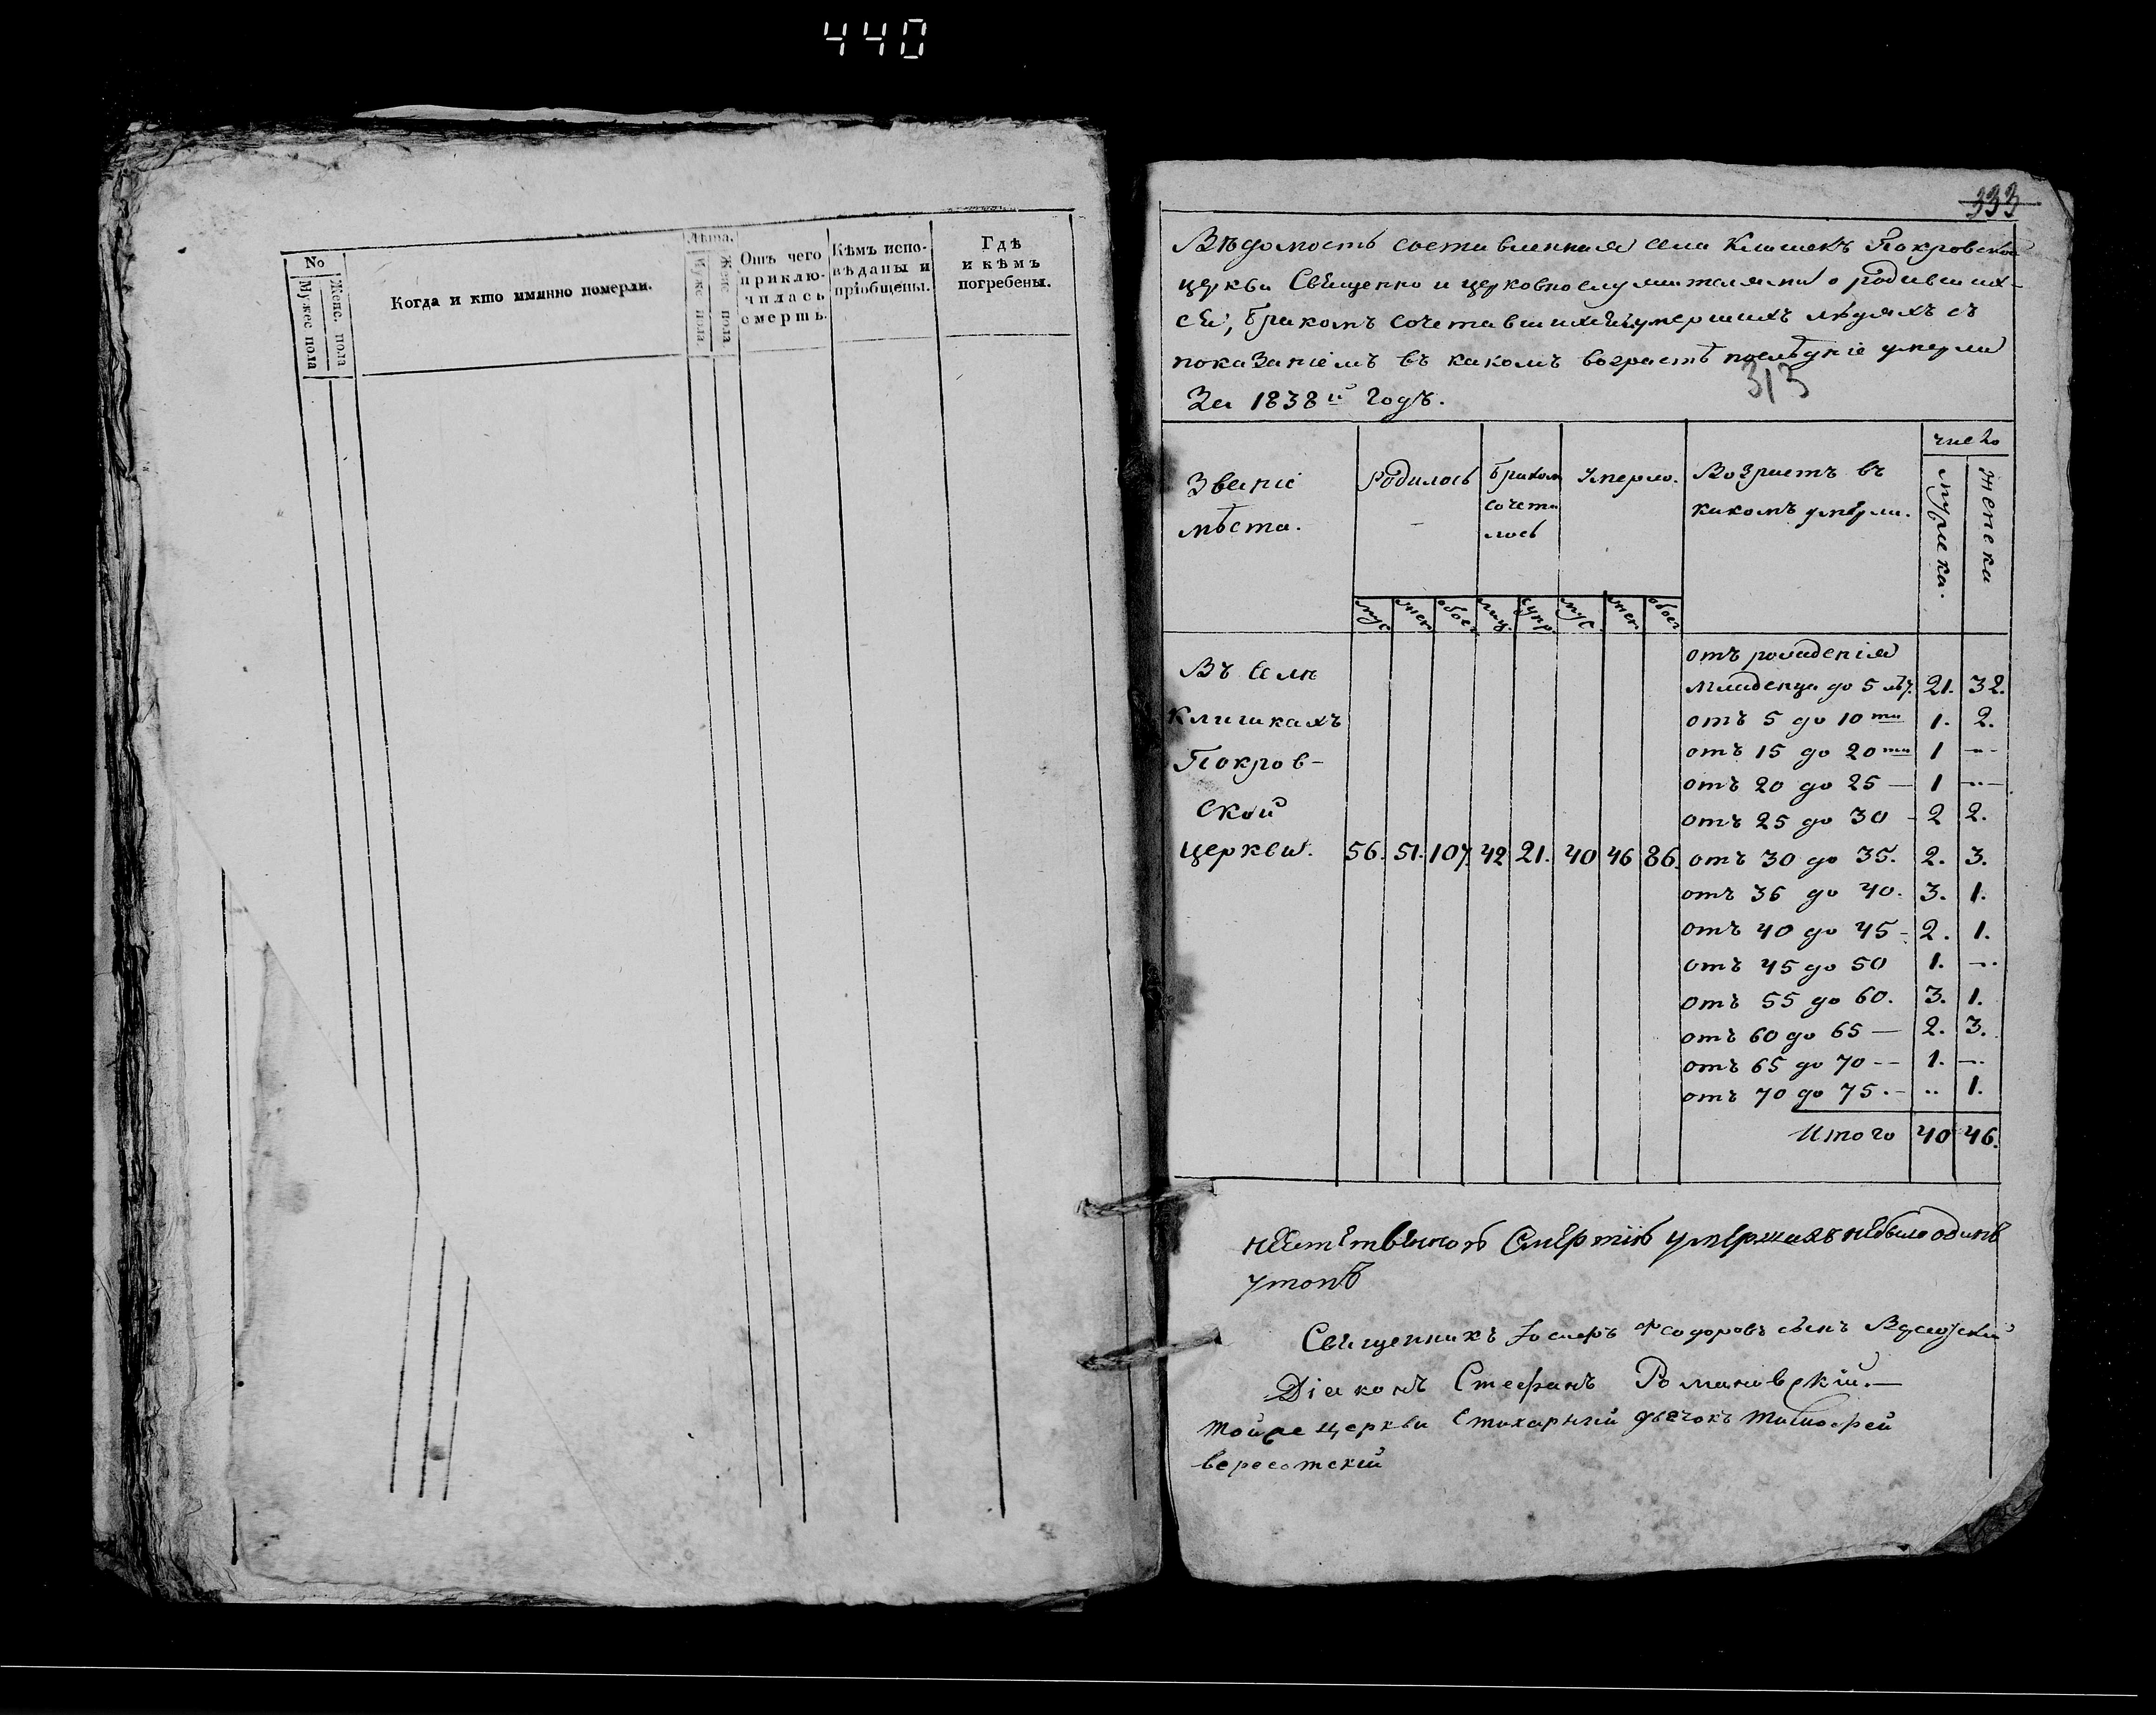 440
No
Мужес пола
Женс. пола
Когда и кто имянно померли.
Лѣта.
Муже пола
Женс пола
Отъ чего
приклю-
чилась
смерть.
Кѣмъ испо-
вѣданы и
пріобщены.
Гдѣ
и кѣмъ
погребены.
333
Вѣдомость составленная села Клишекъ Покровской
церкви Священно и церковнослужителями о родивших-
ся, бракомъ сочетавшихся умершихъ людяхъ съ
показаніемъ въ какомъ возрастѣ послѣдніе умерли
313
За 1838й годъ.
Званіе
мѣста.
Родилось
браком
сочета
лось
Умерло.
Возрастъ въ
какомъ умерли.
число
мужеска.
женска
муж
жен
обоег
лиц.
супр.
муж
жен
обоег
Въ селѣ
Клишкахъ
Покров-
ской
церкви.
56. 51. 107. 42 21. 40 46 86.
отъ рожденія
младенца до 5 лѣт. 21. 32.
отъ 5 до 10ти 1. 2.
отъ 15 до 20ти 1 —
отъ 20 до 25 — 1 —
отъ 25 до 30 - 2 2.
отъ 30 до 35. 2. 3.
отъ 36 до 40. 3. 1.
отъ 40 до 45 - 2. 1.
отъ 45 до 50 1. —.
отъ 55 до 60. 3. 1.
отъ 60 до 65 — 2. 3.
отъ 65 до 70 -- 1. —.
отъ 70 до 75. - .. 1.
Итого 40 46.
неестественною смертію умершихъ небыло одинъ
утопъ
Священникъ Іосифъ Феодоровъ сынъ
Діаконъ Стефанъ Романовскій.—
тойже церкви Стихарный дьячокъ Тимофей
Вересотскій